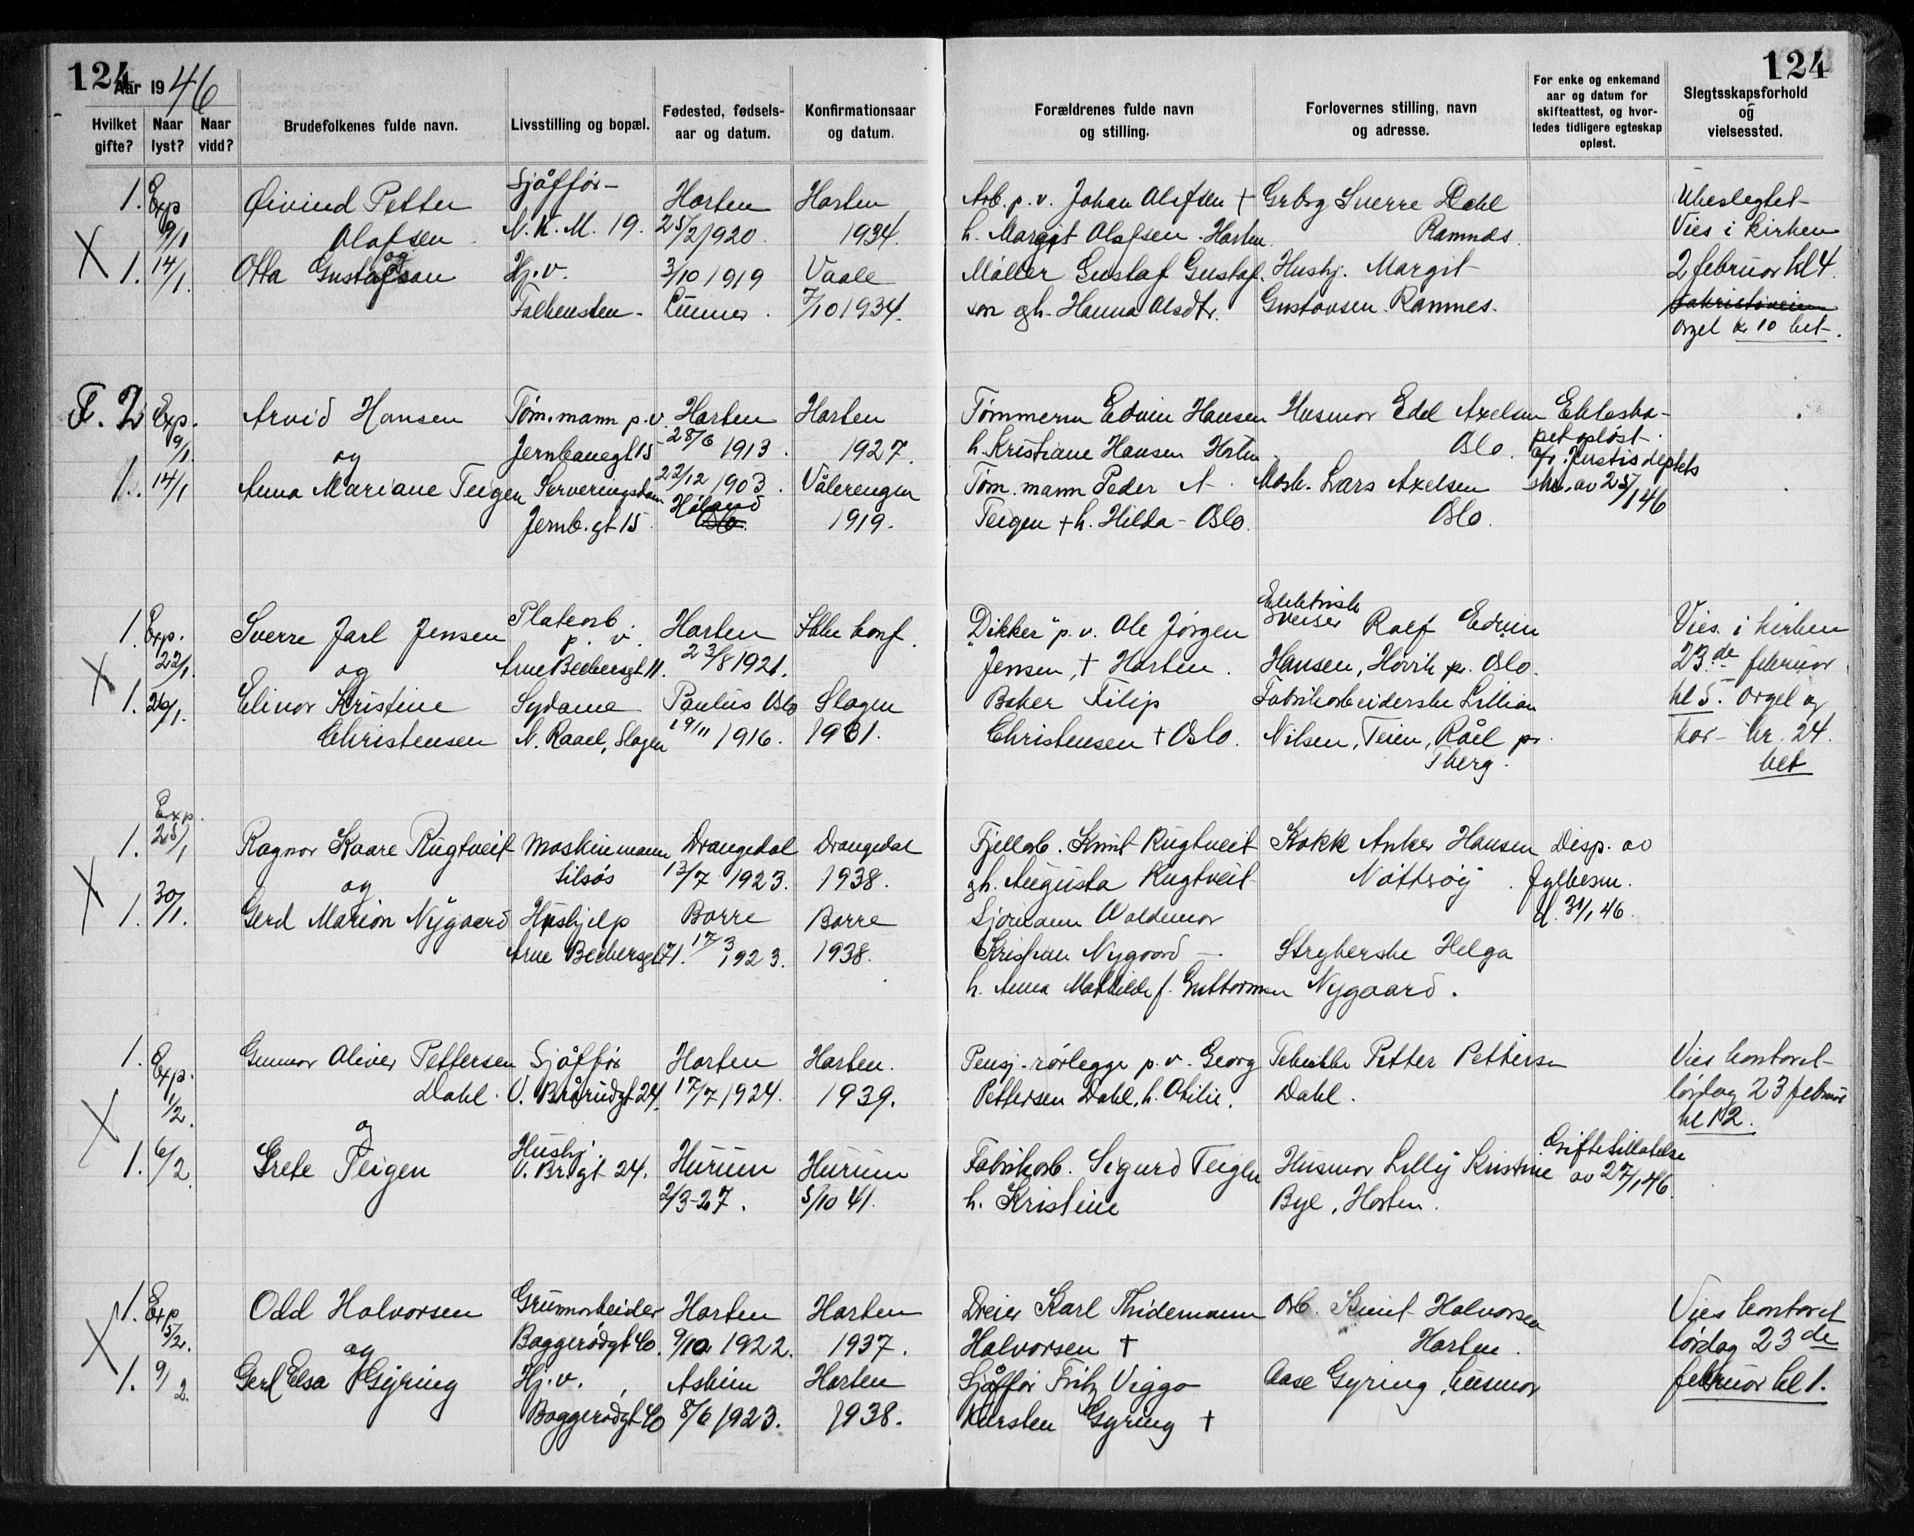 124
Aar 1946
Hvilket gifte?
Naar lyst?
Naar vidd?
Brudefolkenes fulde navn.
Livsstilling og bopæl.
Fødested, fødsels-
aar og datum.
Konfirmationsaar
og datum.
1. Exp 9/1
Øivind Petter
Olafsen
og
Sjåffør
N.K.M. 19.
Horten
25/2 1920.
Horten
1934.
1. 14/1
Olta Gustafson
Hj.v.
Falkensten
3/10 1919
Lunner.
Vaale
7/10 1934.
F. 2 Exp. 9/1
Arvid Hansen
og
Tøm.mann p.v.
Jernbanegt 15
Horten
28/6 1913.
Horten
1927.
1. 14/1
Anna Mariane Teigen
Serveringsdam
Jernb.gt 15.
22/12 1903.
Høland
Oslo
Vålerengen
1919.
1. Exp. 22/1
Sverre Jarl Jensen
og
Platearb.
p. v.
Arne Beckersgt 11.
Horten
23/8 1921.
Ikke konf.
1. 26/1.
Elinor Kristine
Christensen
Sydame
N. Raael, Slagen
Paulus Oslo
19/11 1916.
Slagen
1931.
1. Exp. 25/1
Ragnar Kaare Rugtveit
og
Maskinmann
Drangedal
13/7 1923.
Drangedal
1938.
1. 30/1.
Gerd Marion Nygaard
Hushjelp
Arne Beckersgt 71.
Borre
17/3 1923.
Borre
1938.
1. Exp. 1/2.
Gunnar Oliver Pettersen
Dahl.
og
Sjåffør
V. Brårudgt 24.
Horten
17/7 1924.
Horten.
1939.
1. 6/2
Grete Teigen
Hushj.
V. Br.gt 24.
Hurum
2/3-27.
Hurum
5/10 41.
1. Exp 5/2.
Odd Halvorsen
og
Grunnarbeider
Baggerødgt
Horten
9/10 1922.
Horten
1937.
1. 9/2
Gerd Elsa Gyring
Hj.v.
Baggerødgt
Askim
8/6 1923.
Horten
1938.
124
Forældrenes fulde navn
og stilling.
Forlovernes stilling, navn
og adresse.
For enke og enkemand
aar og datum for
skifteattest, og hvor-
ledes tidligere egteskap
opløst.
Slegtsskapsforhold
og
vielsessted.
Arb. p. v. Johan Olafsen †
h. Margit Olafsen. Horten.
Grbrg Sverre Dahl
Ramnes.
Ubeslegtet
Vies i kirken
Møller Gustaf Gustaf-
son gh. Hanna Olsdtr.
Hushj. Margit
Gustavsen Ramnes.
2 februar kl 4.
orgel kr 10 bet.
Tømmerm Edvin Hansen
h. Kristiane Hansen Horten
Husmor Edel Axelsen
Oslo.
Ekteska-
pet opløst
Justisdeptets
skr. av 25/1 46
Tøm. mann Peder A
Teigen † h. Hilda - Oslo.
Mask. Lars Axelsen
Oslo.
"Dikker" p. v. Ole Jørgen
Jensen, † Horten.
Elektrisk
sveiser Rolf Edvin
Hansen, Høvik p. Oslo.
Vies i kirken
23.de februar
kl 5. orgel og
kor - kr. 24.
bet
Baker Filip
Christensen † Oslo.
Fabrikarbeiderske Lillian
Nilsen, Teien, Råel pr.
Tberg.
Fjellarb. Knut Rugtveit
gh. Augusta Rugtveit
Kokk Anker Hansen
Nøtterøy
Disp. av
fylkesm.
d. 31/1 46.
Sjømann Waldemar
Kristian Nygaard
h. Anna Mathilde f. Guttormsen
Strykerske Helga
Nygaard.
Pensj. rørlegge p. v. Georg
Pettersen Dahl, h. Otilie.
Tekniker Petter Pettersen
Dahl.
Vies kontoret
lørdag 23 februar
kl 12.
Fabrikarb. Sigurd Teigen
h. Kristine
Husmor Lilly Kristine
Bye, Horten.
Giftetillatelse
av 27/1 46.
Dreier Karl Thidemann
Halvorsen †
Arb. Knut Halvorsen
Horten.
Vies kontoret
lørdag 23de
februar kl 1.
Sjåffør Fritz Viggo
Karsten Gyring †
Aase Gyring, husmor